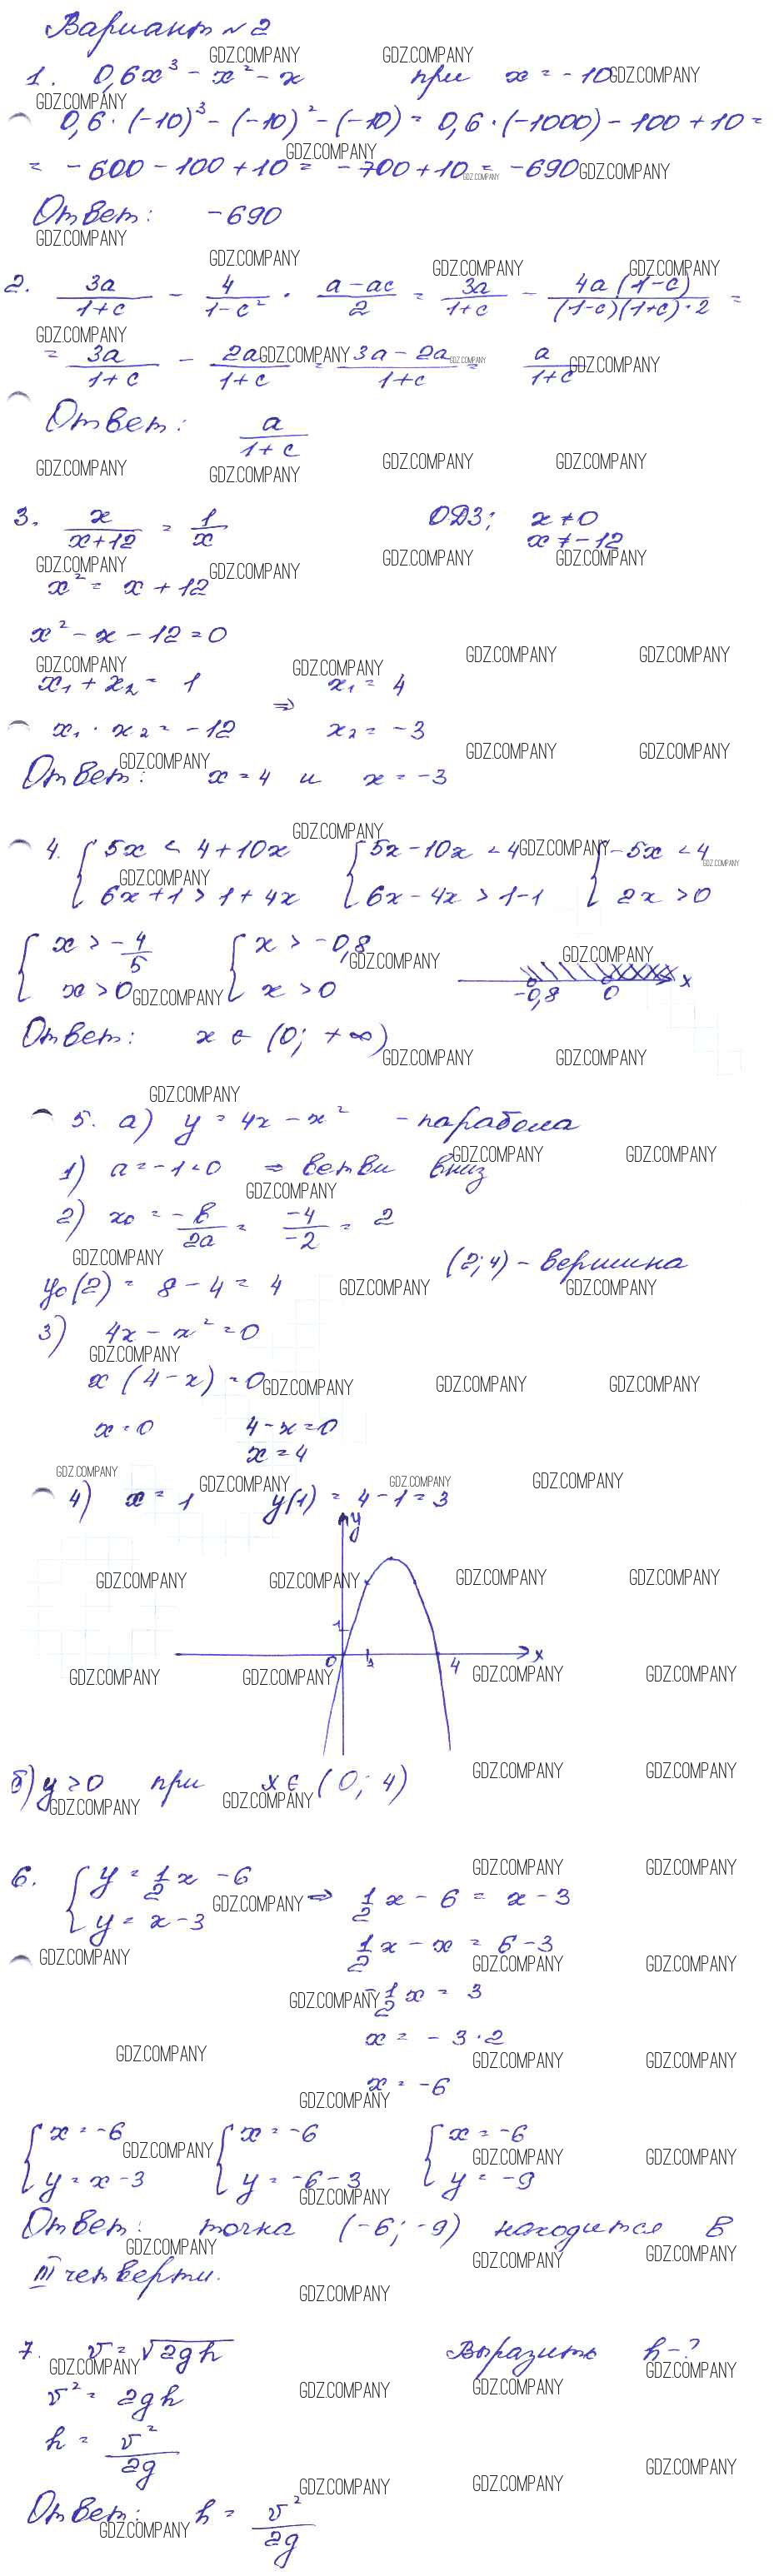 Вариант №2
1. 0,6x³ - x² - x при x = -10
0,6·(-10)³ - (-10)² - (-10) = 0,6·(-1000) - 100 + 10 =
= -600 - 100 + 10 = -700 + 10 = -690
Ответ: -690
2. 3a/(1+c) - 4/(1-c²) · (a-ac)/2 = 3a/(1+c) - 4a(1-c)/((1-c)(1+c)·2) =
= 3a/(1+c) - 2a/(1+c) = (3a-2a)/(1+c) = a/(1+c)
Ответ: a/(1+c)
3. x/(x+12) = 1/x ОДЗ: x ≠ 0
x ≠ -12
x² = x + 12
x² - x - 12 = 0
x₁ + x₂ = 1 ⇒ x₁ = 4
x₁ · x₂ = -12 x₂ = -3
Ответ: x = 4 и x = -3
4. { 5x < 4 + 10x { 5x - 10x < 4 { -5x < 4
6x + 1 > 1 + 4x 6x - 4x > 1 - 1 2x > 0
{ x > -4/5 { x > -0,8
x > 0 x > 0
-0,8 0 x
Ответ: x ∈ (0; +∞)
5. а) y = 4x - x² - парабола
1) a = -1 < 0 ⇒ ветви вниз
2) x₀ = -b/2a = -4/-2 = 2
(2; 4) - вершина
y₀(2) = 8 - 4 = 4
3) 4x - x² = 0
x(4 - x) = 0
x = 0 4 - x = 0
x = 4
4) x = 1 y(1) = 4 - 1 = 3
y
1
0 1 4 x
б) y > 0 при x ∈ (0; 4)
6. { y = 1/2 x - 6 ⇒ 1/2 x - 6 = x - 3
y = x - 3
1/2 x - x = 6 - 3
-1/2 x = 3
x = -3·2
x = -6
{ x = -6 { x = -6 { x = -6
y = x - 3 y = -6 - 3 y = -9
Ответ: точка (-6; -9) находится в
III четверти.
7. v = √2gh Выразить h - ?
v² = 2gh
h = v²/2g
Ответ: h = v²/2g
GDZ.COMPANY